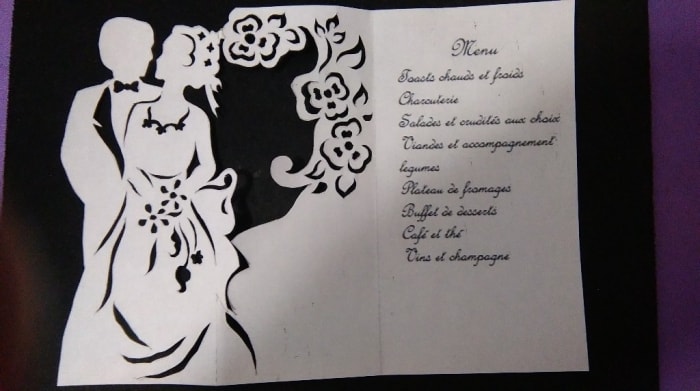 Menu
Toasts chauds et froids
Charcuterie
Salades et crudités aux choix
Viandes et accompagnement
legumes
Plateau de fromages
Buffet de desserts
Café et thé
Vins et champagne